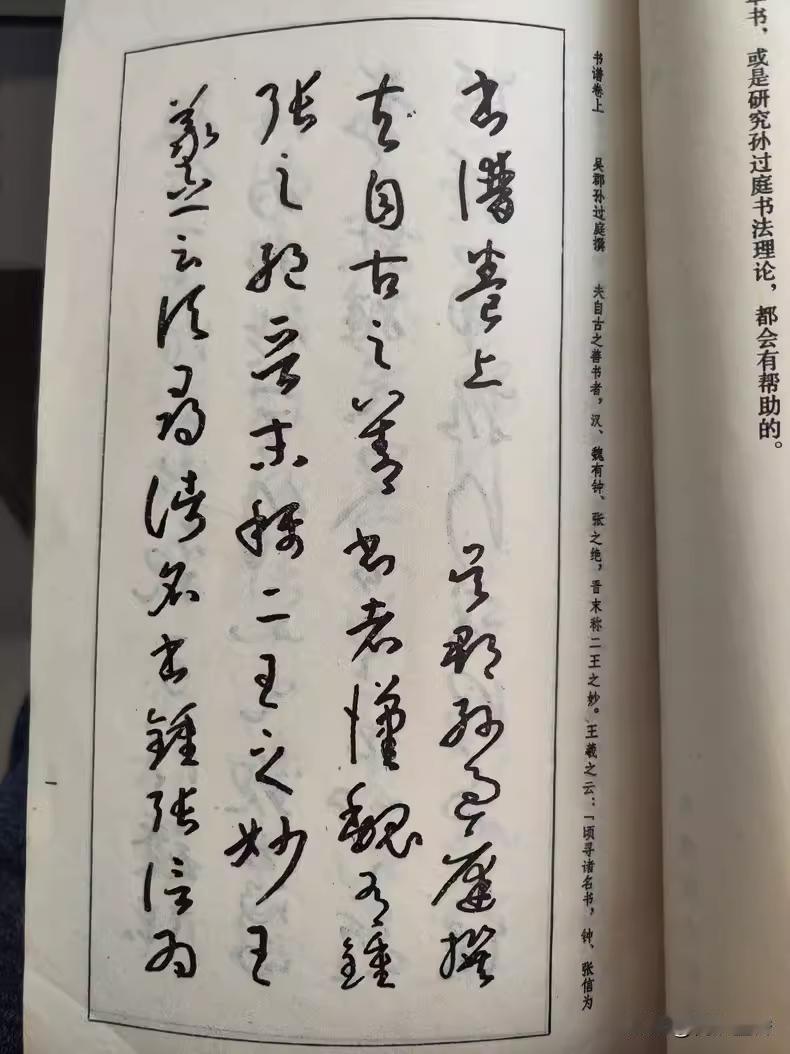 书，或是研究孙过庭书法理论，都会有帮助的。
书谱卷上 吴郡孙过庭撰 夫自古之善书者，汉、魏有钟、张之绝，晋末称二王之妙。王羲之云：「顷寻诸名书，钟、张信为
書譜卷上 吳郡孫過庭撰
夫自古之善書者漢魏有鍾
張之絕晉末稱二王之妙王
羲之云頃尋諸名書鍾張信為
一